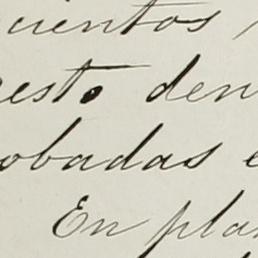 cientos
esto den
obadas e
En plan